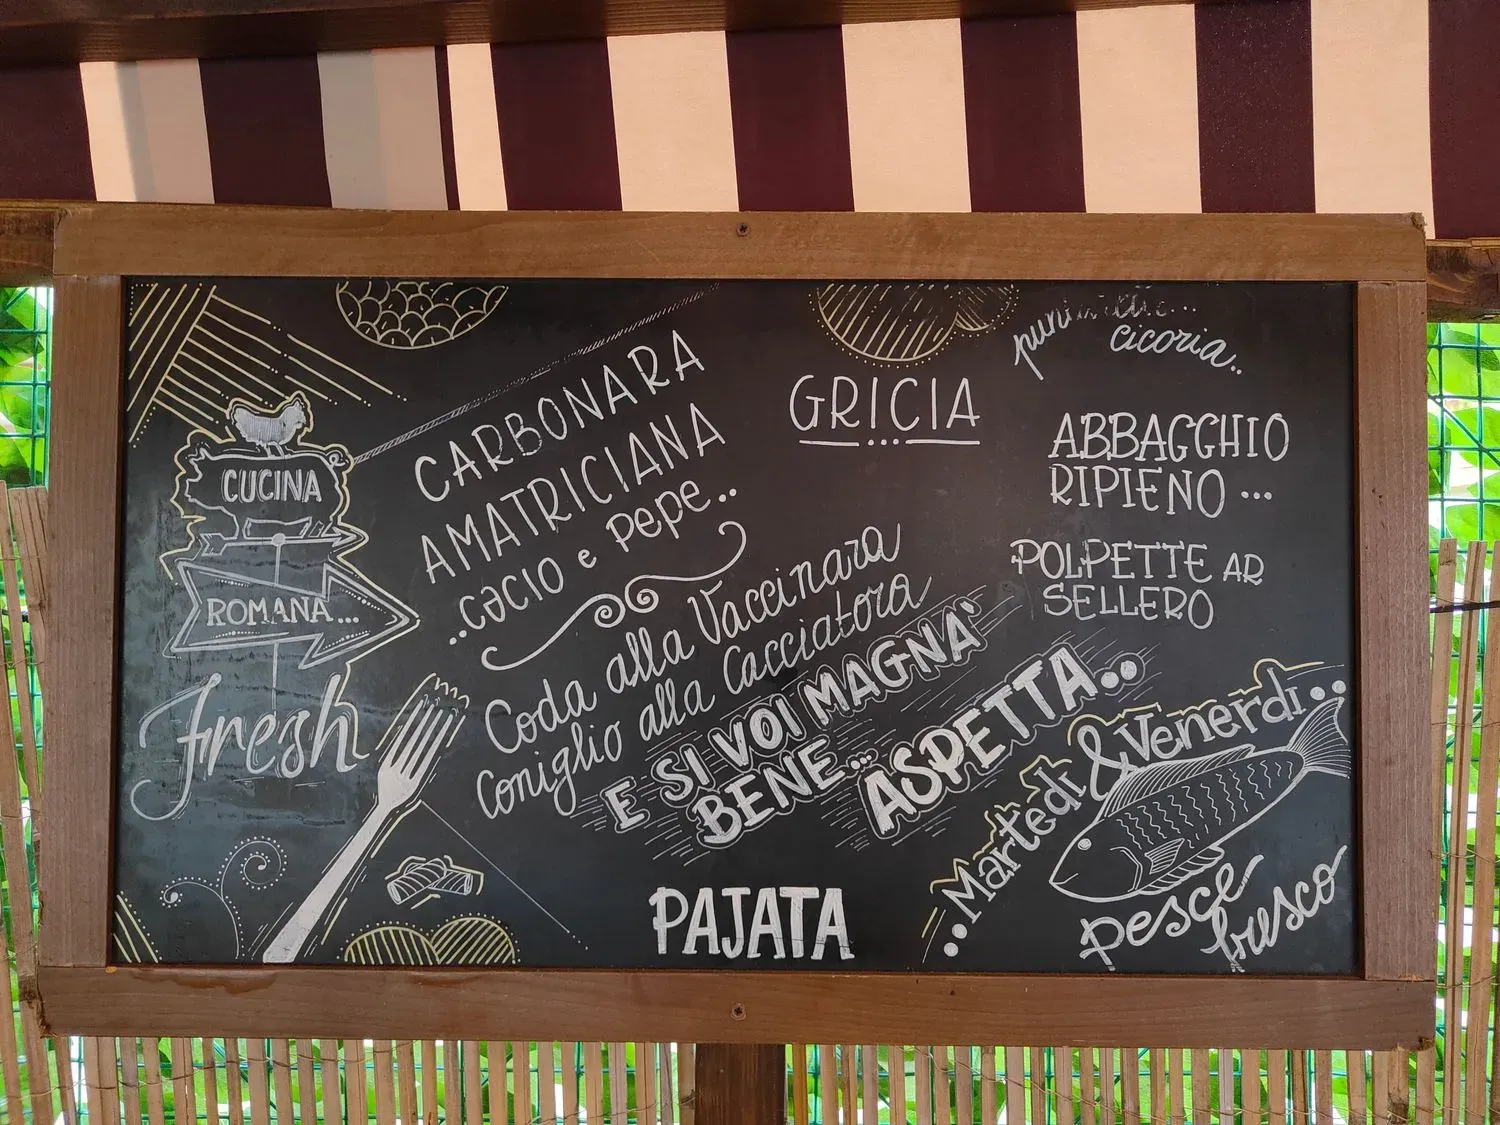 CUCINA
ROMANA...
fresh
CARBONARA
AMATRICIANA
..cacio e pepe..
Coda alla Vaccinara
Coniglio alla Cacciatora
E SI VOI MAGNA'
BENE... ASPETTA..
PAJATA
GRICIA
cicoria..
ABBAGGHIO
RIPIENO ...
POLPETTE AR
SELLERO
..Martedì & Venerdì..
pesce
fresco